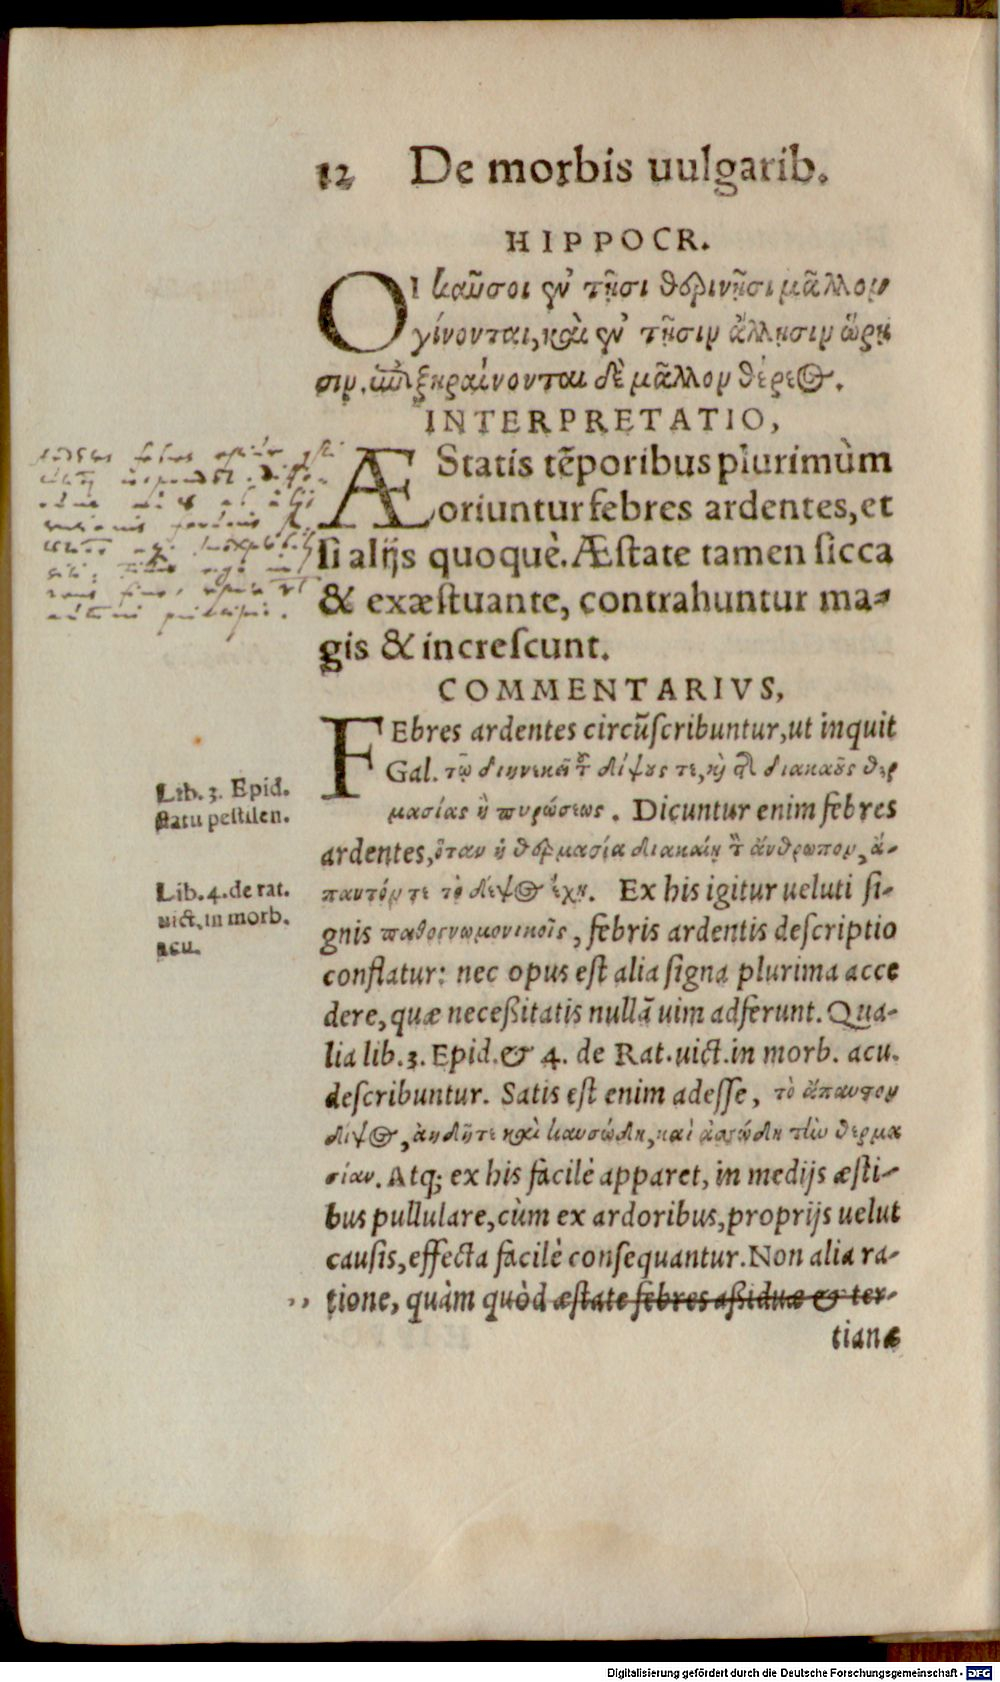 12 De morbis uulgarib.
HIPPOCR.
ΟΙ καῦσοι ἐν τῇσι θερινῇσι μᾶλλον
γίνονται, καὶ ἐν τῇσιν ἄλλῃσιν ὥρῃ
σιν. ἐπιξηραίνονται δὲ μᾶλλον θέρεος.
INTERPRETATIO,
ÆStatis tẽporibus plurimùm
oriuntur febres ardentes, et
si alijs quoquè. Æstate tamen sicca
& exæstuante, contrahuntur ma-
gis & increscunt.
COMMENTARIVS,
FEbres ardentes circũscribuntur, ut inquit
Gal. τῷ διηνεκεῖ τοῦ δίψους τε, καὶ τῆς διακαοῦς θερ
μασίας ἢ πυρώσεως. Dicuntur enim febres
Lib. 3. Epid.
statu pestilen.
ardentes, ὅταν ἡ θερμασία διακαίῃ τὸν ἄνθρωπον, ἄ-
παυτόν τε τὸ δίψος ἔχῃ. Ex his igitur ueluti si-
Lib. 4. de rat.
uict. in morb.
acu.
gnis παθογνωμονικοῖς, febris ardentis descriptio
conflatur: nec opus est alia signa plurima acce
dere, quæ necessitatis nullã uim adferunt. Qua-
lia lib. 3. Epid. & 4. de Rat. uict. in morb. acu.
describuntur. Satis est enim adesse, τὸ ἄπαυστον
δίψος, ἀηδῆ τε καὶ καυσώδη, καὶ ἀσώδη τὴν θερμα
σίαν. Atq; ex his facilè apparet, in medijs æsti-
bus pullulare, cùm ex ardoribus, proprijs uelut
causis, effecta facilè consequantur. Non alia ra-
tione, quàm quòd æstate febres assiduæ & ter-
tianæ
Digitalisierung gefördert durch die Deutsche Forschungsgemeinschaft - DFG